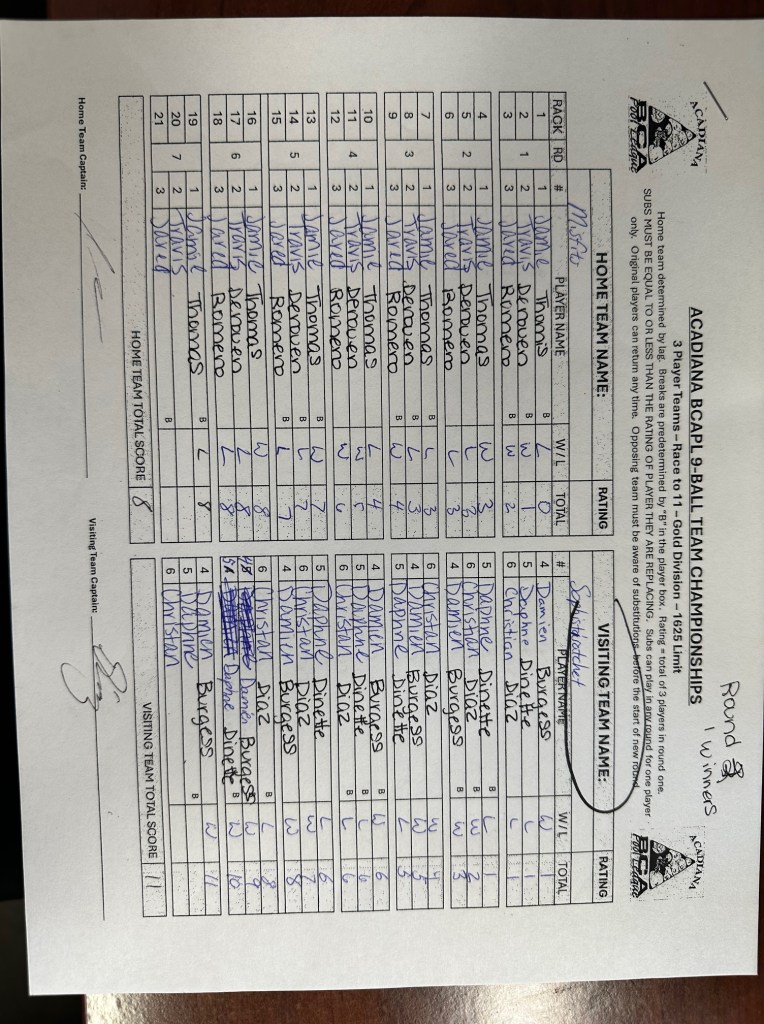 ACADIANA BCA Pool League
Round of 1 Winners
ACADIANA BCA Pool League
ACADIANA BCAPL 9-BALL TEAM CHAMPIONSHIPS
3 Player Teams – Race to 11 – Gold Division – 1625 Limit
Home team determined by lag. Breaks are predetermined by "B" in the player box. Rating = total of 3 players in round one.
SUBS MUST BE EQUAL TO OR LESS THAN THE RATING OF PLAYER THEY ARE REPLACING. Subs can play in any round for one player
only. Original players can return any time. Opposing team must be aware of substitutions before the start of new round.
HOME TEAM NAME: RATING VISITING TEAM NAME: RATING
Misfits
RACK RD # PLAYER NAME W/L TOTAL # PLAYER NAME W/L TOTAL
1 1 Jamie Thomis B L 0 4 Damien Burgess W 1
2 1 2 Travis Derouen W 1 5 Daphne Dinette B L 1
3 3 Jared Romero B W 2 6 Christian Diaz L 1
4 1 Jamie Thomas W 3 5 Daphne Dinette B L 1
5 2 2 Travis Derouen B L 3 6 Christian Diaz W 2
6 3 Jared Romero L 3 4 Damien Burgess B W 3
7 1 Jamie Thomas B L 3 6 Christian Diaz W 4
8 3 2 Travis Derouen L 3 4 Damien Burgess B W 5
9 3 Jared Romero B W 4 5 Daphne Dinette L 5
10 1 Jamie Thomas L 4 4 Damien Burgess B W 6
11 4 2 Travis Derouen B W 5 5 Daphne Dinette L 6
12 3 Jared Romero W 6 6 Christian Diaz B L 6
13 1 Jamie Thomas B W 7 5 Daphne Dinette L 6
14 5 2 Travis Derouen L 7 6 Christian Diaz B W 7
15 3 Jared Romero B L 7 4 Damien Burgess W 8
16 1 Jamie Thomas W 8 6 Christian Diaz B L 8
17 6 2 Travis Derouen B L 8 Damien Burgess W 9
18 3 Jared Romero L 8 Daphne Dinette B W 10
19 1 Jamie Thomas B L 8 4 Damien Burgess W 11
20 7 2 Travis 5 Daphne B
21 3 Jared B 6 Christian
HOME TEAM TOTAL SCORE 8 VISITING TEAM TOTAL SCORE 11
Home Team Captain: Visiting Team Captain: